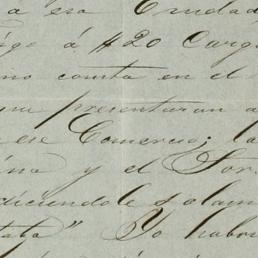 a esa Ciudad
igo á $20 Carg
no consta en el
que presentaran a
ese Comercio; la
ina y el For
diciendole solam
tata" Yo habr